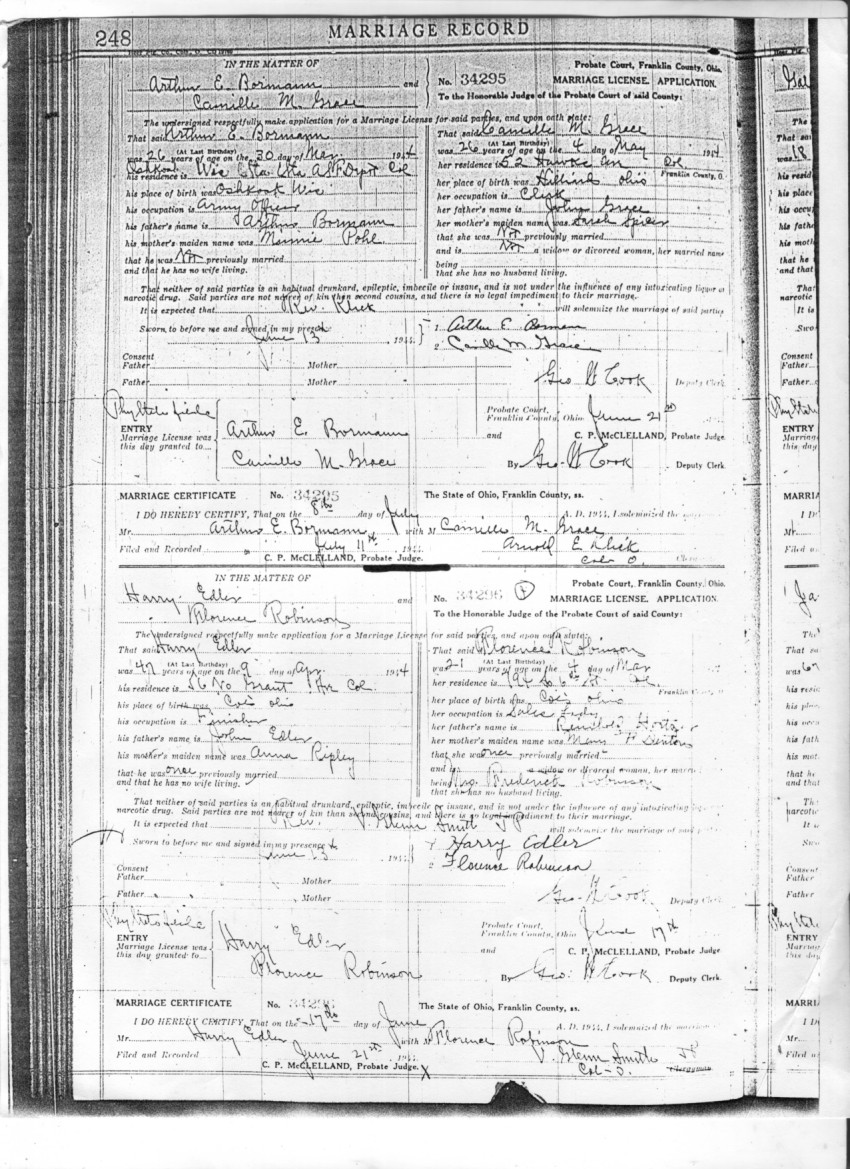 248 MARRIAGE RECORD
IN THE MATTER OF
Arthur E. Bormann and
Camille M. Grace
Probate Court, Franklin County, Ohio.
No. 34295 MARRIAGE LICENSE. APPLICATION.
To the Honorable Judge of the Probate Court of said County:
The undersigned respectfully make application for a Marriage License for said parties, and upon oath state:
That said Arthur E. Bormann
(At Last Birthday)
was 26 years of age on the 30 day of Mar 1944
his residence is Oshkosh Wis
his place of birth was Oshkosh Wis
his occupation is Army Officer
his father's name is Arthur Bormann
his mother's maiden name was Minnie Pohl
that he was Not previously married
and that he has no wife living.
That said Camille M. Grace
(At Last Birthday)
was 26 years of age on the 4 day of May 1944
her residence is 52 Col
Franklin County, O.
her place of birth was Hilliards Ohio
her occupation is Clerk
her father's name is John Grace
her mother's maiden name was Sarah
that she was Not previously married
and is Not a widow or divorced woman, her married name
being
that she has no husband living.
That neither of said parties is an habitual drunkard, epileptic, imbecile or insane, and is not under the influence of any intoxicating liquor or
narcotic drug. Said parties are not nearer of kin than second cousins, and there is no legal impediment to their marriage.
It is expected that Rev. Klick will solemnize the marriage of said parties
Sworn to before me and signed in my presence
June 13 1944
1 Arthur E. Bormann
2 Camille M. Grace
Consent
Father Mother
Father Mother
Geo W Cook Deputy Clerk.
ENTRY
Marriage License was
this day granted to
Arthur E. Bormann
Camille M. Grace
Probate Court,
Franklin County, Ohio June 21st
and C. P. McCLELLAND, Probate Judge.
By Geo. W Cook Deputy Clerk.
MARRIAGE CERTIFICATE No. 34295 The State of Ohio, Franklin County, ss.
I DO HEREBY CERTIFY, That on the 8th day of July A. D. 1944, I solemnized the
Mr. Arthur E. Bormann with M Camille M. Grace
Filed and Recorded July 11th 1944. Arnold E. Klick
C. P. McCLELLAND, Probate Judge. Col. O.
IN THE MATTER OF
Harry Edler and
Florence Robinson
Probate Court, Franklin County, Ohio.
No. 34296 MARRIAGE LICENSE. APPLICATION.
To the Honorable Judge of the Probate Court of said County:
The undersigned respectfully make application for a Marriage License for said parties, and upon oath state:
That said Harry Edler
(At Last Birthday)
was 47 years of age on the 9 day of Apr. 1944
his residence is 56 No Grant Ave Col.
his place of birth was Cols Ohio
his occupation is Finisher
his father's name is John Edler
his mother's maiden name was Anna Ripley
that he was once previously married
and that he has no wife living.
That said Florence Robinson
(At Last Birthday)
was 21 years of age on the 4 day of Mar
her residence is 794 So 6th St Col.
Franklin County, O
her place of birth was Cols Ohio
her occupation is Sales Lady
her father's name is
her mother's maiden name was
that she was once previously married
and is a widow or divorced woman, her married
being Robinson
that she has no husband living.
That neither of said parties is an habitual drunkard, epileptic, imbecile or insane, and is not under the influence of any intoxicating
narcotic drug. Said parties are not nearer of kin than second cousins, and there is no legal impediment to their marriage.
It is expected that Rev. V. Glenn Smith JP will solemnize the marriage of said
Sworn to before me and signed in my presence
June 13 1944
Harry Edler
2 Florence Robinson
Consent
Father Mother
Father Mother
Geo. W Cook Deputy Clerk
ENTRY
Marriage License was
this day granted to
Harry Edler
Florence Robinson
Probate Court,
Franklin County, Ohio June 17th
and C. P. McCLELLAND, Probate Judge
By Geo. W Cook Deputy Clerk.
MARRIAGE CERTIFICATE No. 34296 The State of Ohio, Franklin County, ss.
I DO HEREBY CERTIFY, That on the 17th day of June A. D. 1944, I solemnized the marriage
Mr. Harry Edler with M Florence Robinson
Filed and Recorded June 21st 1944. V. Glenn Smith JP
C. P. McCLELLAND, Probate Judge. Col-O. Clergyman